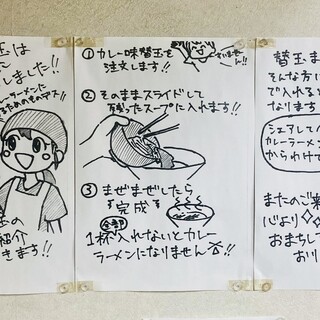 玉は
しました!!
ラーメンに
るためのものデス!!
玉の
紹介
きます!!
① カレー味替玉を
注文します!!
すいませーん!
② そのままスライドして
残ったスープに入れます!!
③ まぜまぜしたら
完成
全部
1杯入れないとカレー
ラーメンになりません!!
替玉ま
そんな方に
で入れると
なります
シェアして
カレーラーメン
からわけて
またのご来
心より
おまちして
おり